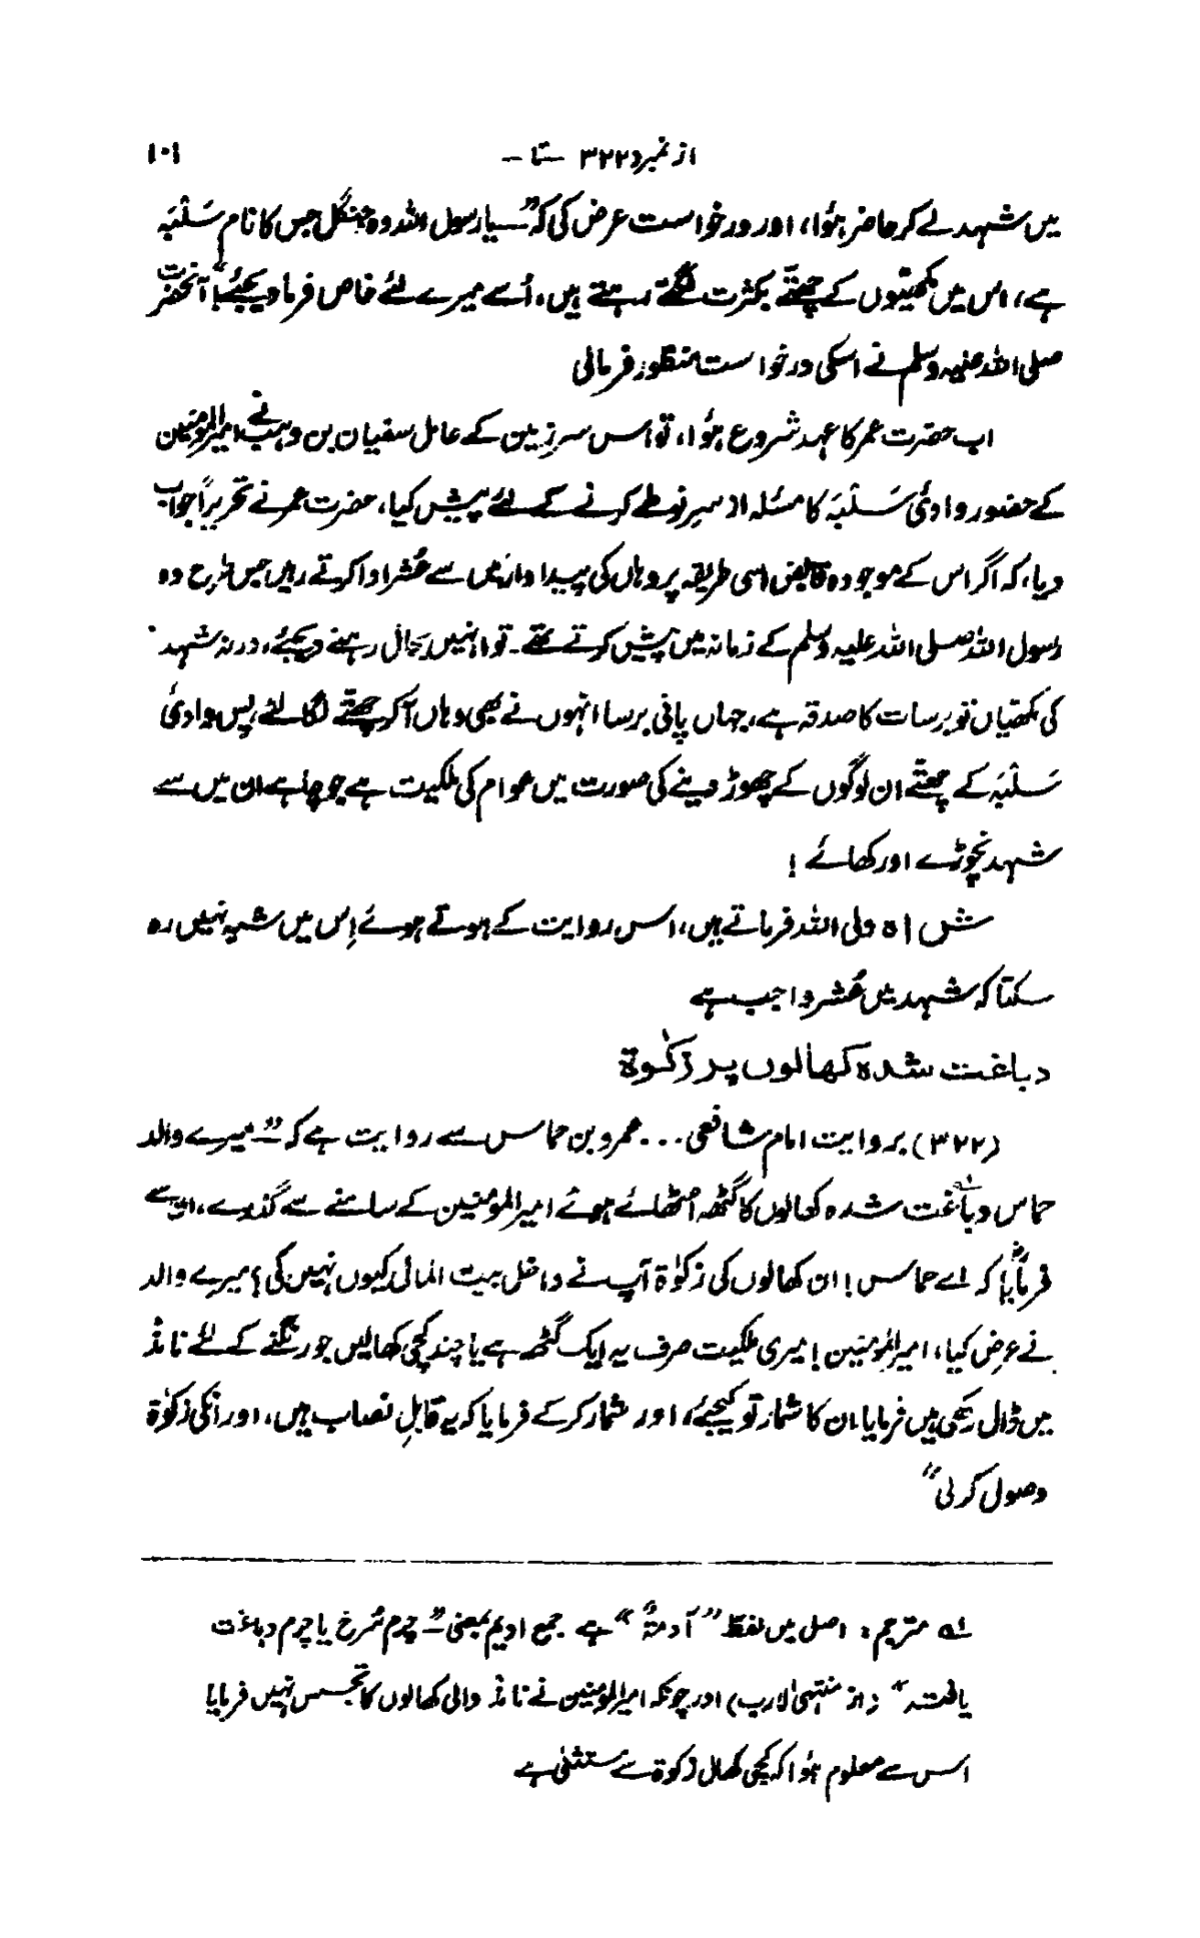 از نمبر ۳۲۲ — تا — ۱۰۱
میں شہد لے کر حاضر ہؤا، اور درخواست عرض کی کہ” یا رسول اللہ وہ جنگل جس کا نام سَلَبَہ
ہے، اس میں مکھیوں کے چھتّے بکثرت لگتے رہتے ہیں، اُسے میرے لئے خاص فرما دیجئے“! آنحضرت
صلی اللہ علیہ وسلم نے اسکی درخواست منظور فرمالی
اب حضرت عمر کا عہد شروع ہؤا، تو اس سرزمین کے عامل سفیان بن وہب نے امیر المؤمنین
کے حضور وادیٔ سَلَبَہ کا مسئلہ از سرِ نو طے کرنے کے لئے پیش کیا، حضرت عمر نے تحریراً جواب
دیا، کہ اگر اس کے موجودہ قابض اسی طریقہ پر وہاں کی پیداوار میں سے عُشر ادا کرتے رہیں جس طرح وہ
رسول اللہ صلی اللہ علیہ وسلم کے زمانہ میں پیش کرتے تھے۔ تو انہیں بحال رہنے دیجئے، ورنہ شہد
کی مکھیاں تو برسات کا صدقہ ہے، جہاں پانی برسا انہوں نے بھی وہاں آکر چھتّے لگا لئے پس وادیٔ
سَلَبَہ کے چھتّے ان لوگوں کے چھوڑ دینے کی صورت میں عوام کی ملکیت ہے جو چاہے ان میں سے
شہد نچوڑے اور کھائے !
ش اہ ولی اللہ فرماتے ہیں، اس روایت کے ہوتے ہوئے اِس میں شبہ نہیں رہ
سکتا کہ شہد میں عُشر واجب ہے
دباغت شدہ کھالوں پر زکوٰۃ
(۳۲۲) بروایت امام شافعی ... عمرو بن حماس سے روایت ہے کہ ” میرے والد
حماس دباغت شدہ کھالوں کا گٹھہ اٹھائے ہوئے امیر المؤمنین کے سامنے سے گذرے، ان سے
فرمایا کہ اے حماس ! ان کھالوں کی زکوٰۃ آپ نے داخل بیت المال کیوں نہیں کی؟ میرے والد
نے عرض کیا، امیر المؤمنین ! میری ملکیت صرف یہ ایک گٹھہ ہے یا چند کچی کھالیں جو رنگنے کے لئے ناند
میں ڈال رکھی ہیں فرمایا ان کا شمار تو کیجئے، اور شمار کرکے فرمایا کہ یہ قابلِ نصاب ہیں، اور انکی زکوٰۃ
وصول کرلی“
لہ مترجم : اصل میں لفظ ” آدمۃٌ “ ہے جمع ادیم بمعنی ” چرم سُرخ یا چرم دباغت
یافتہ“ (از منتہی الارب) اور چونکہ امیر المومنین نے ناند والی کھالوں کا تجسس نہیں فرمایا
اس سے معلوم ہؤا کہ کچی کھال زکوۃ سے مستثنیٰ ہے